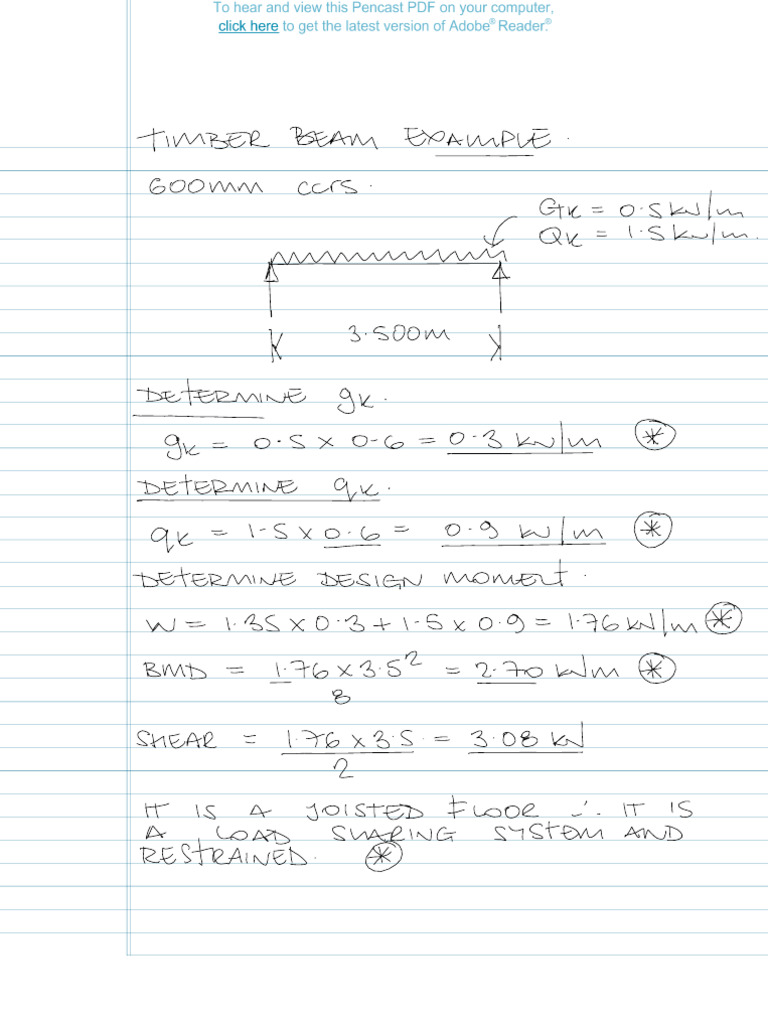 To hear and view this Pencast PDF on your computer,
click here to get the latest version of Adobe® Reader.®
TIMBER BEAM EXAMPLE.
600mm ccrs.
Gk = 0.5 kN/m
Qk = 1.5 kN/m.
3.500m
DETERMINE gk.
gk = 0.5 x 0.6 = 0.3 kN/m *
DETERMINE qk.
qk = 1.5 x 0.6 = 0.9 kN/m *
DETERMINE DESIGN MOMENT.
W = 1.35 x 0.3 + 1.5 x 0.9 = 1.76 kN/m *
BMD = 1.76 x 3.5² = 2.70 kNm *
8
SHEAR = 1.76 x 3.5 = 3.08 kN
2
IT IS A JOISTED FLOOR ∴ IT IS
A LOAD SHARING SYSTEM AND
RESTRAINED. *